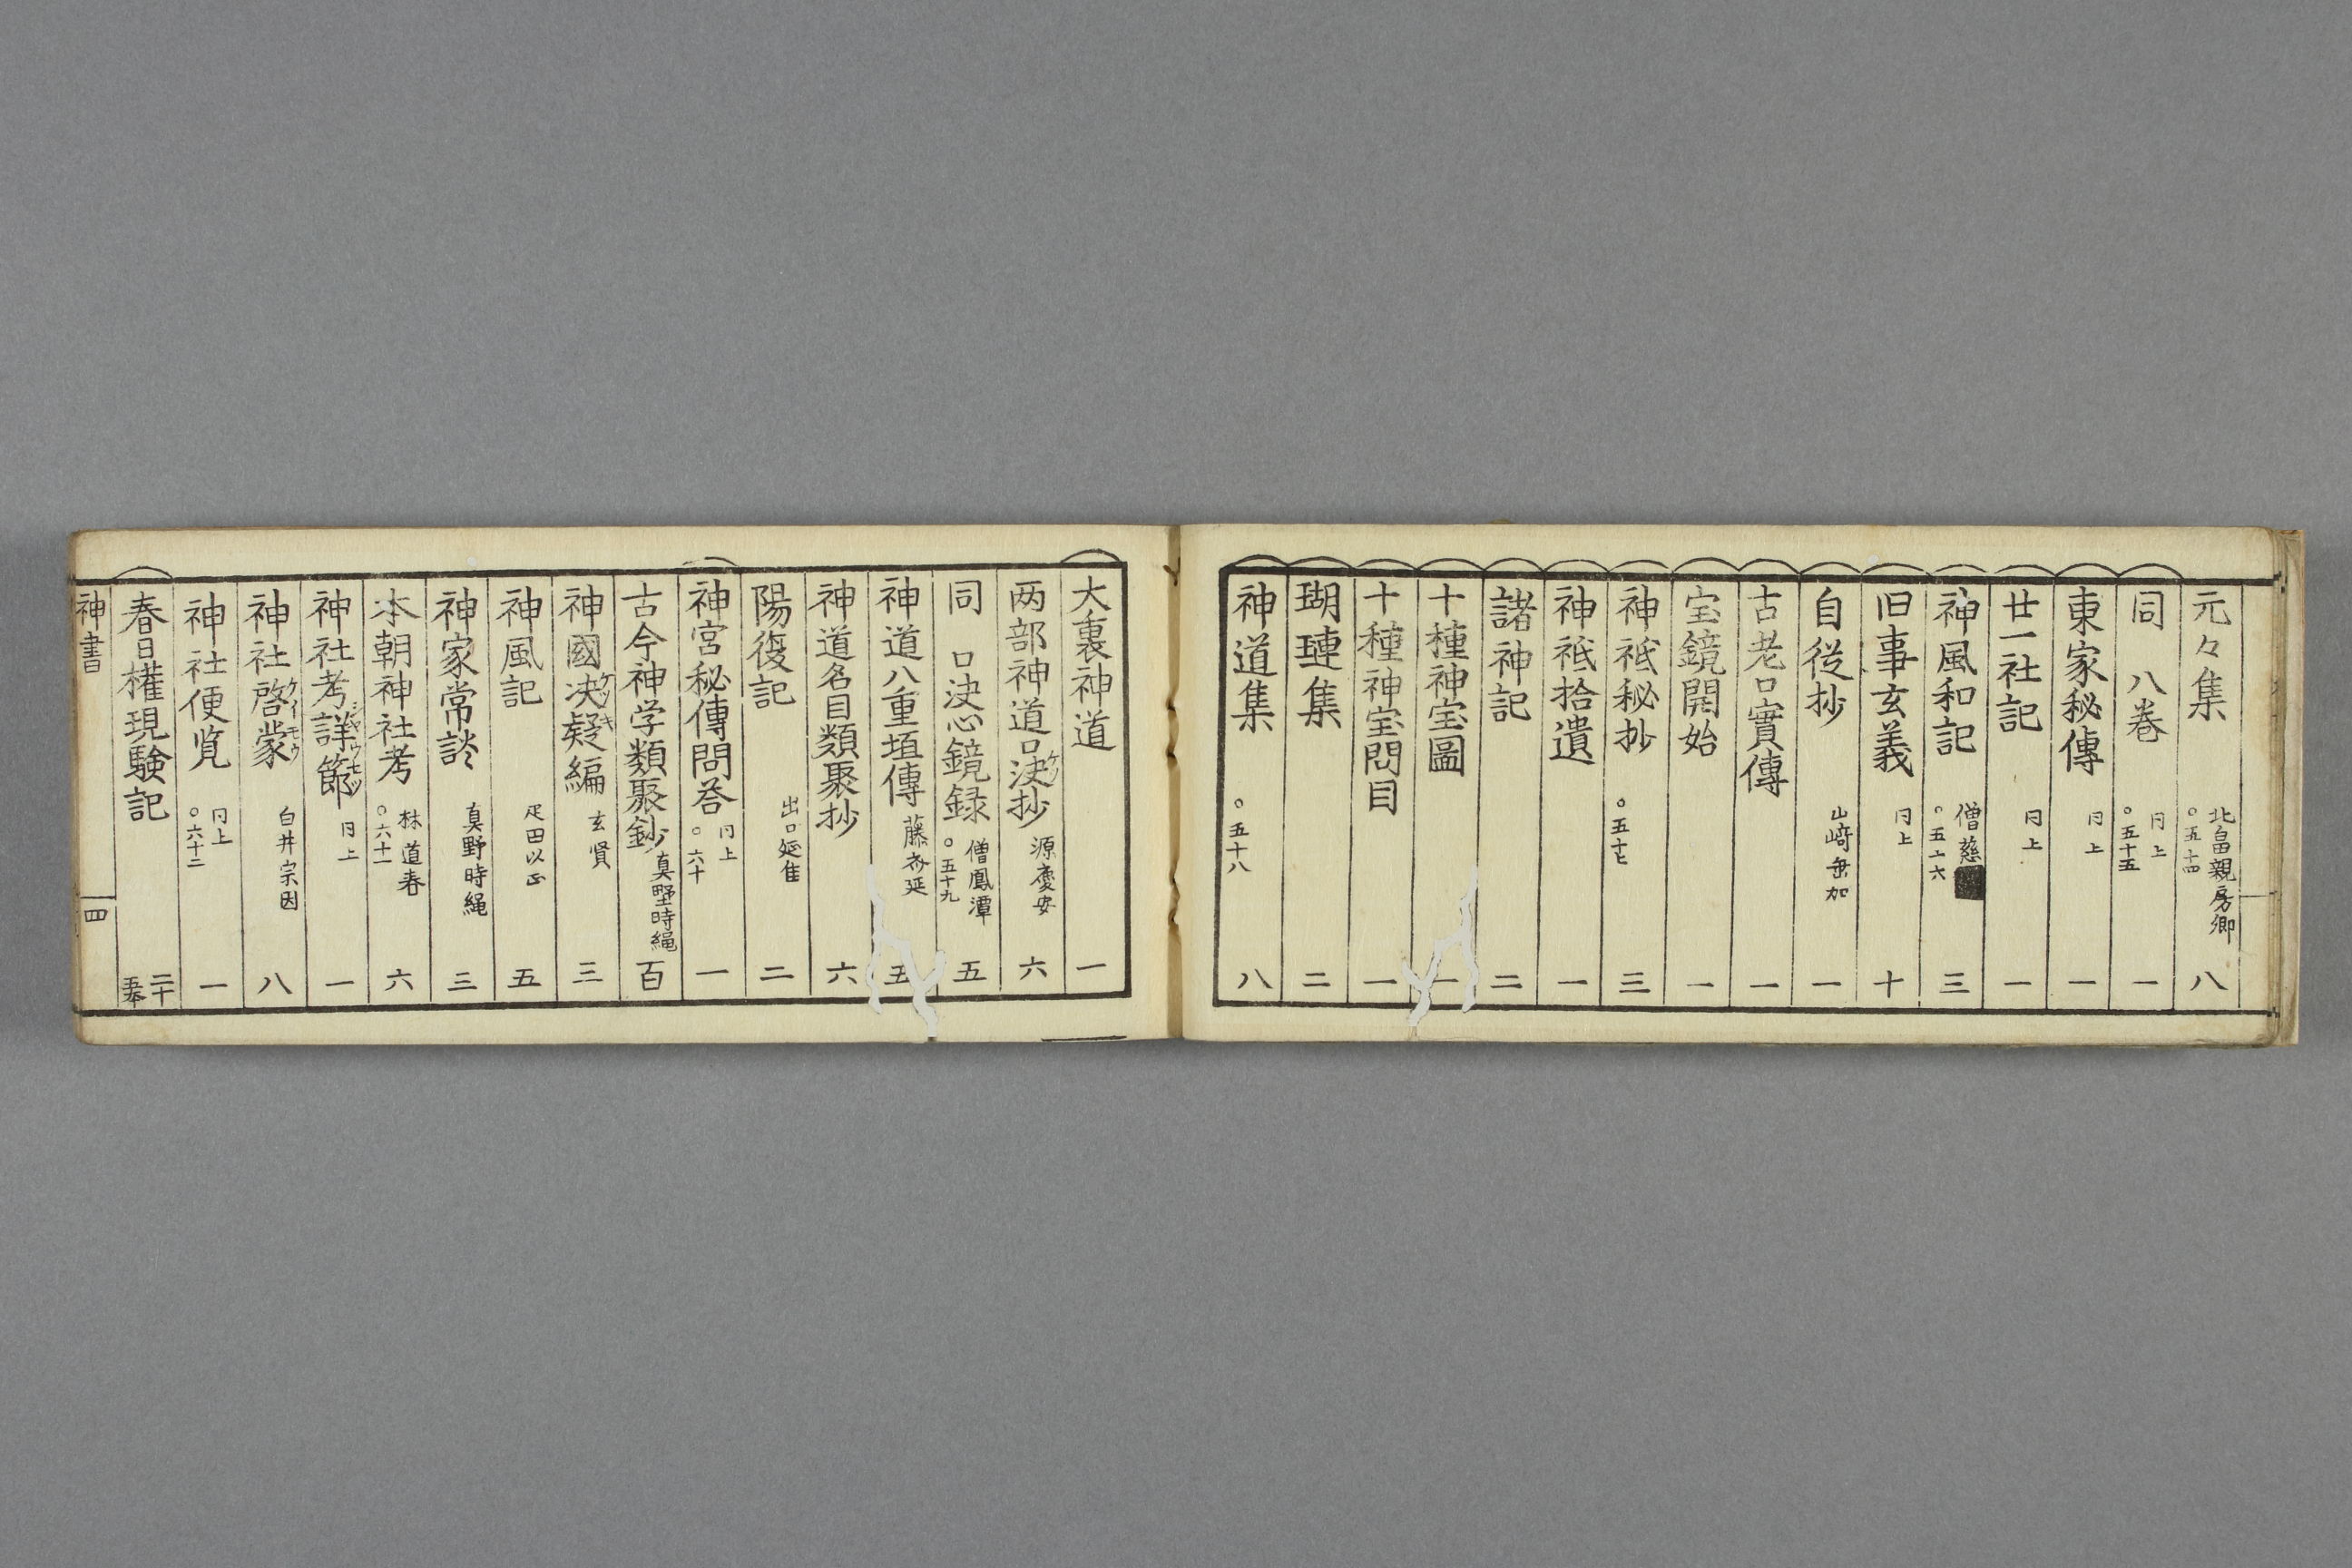 元々集 北畠親房卿 ○五十四 八
同 八巻 同上 ○五十五 一
東家秘傳 同上 一
廿一社記 同上 一
神風和記 僧慈 ○五十六 三
旧事玄義 同上 十
自従抄 山﨑垂加 一
古老口實傳 一
宝鏡開始 一
神祇秘抄 ○五十七 三
神祇拾遺 一
諸神記 二
十種神宝圖 一
十種神宝問目 一
瑚璉集 二
神道集 ○五十八 八
大裏神道 一
两部神道口决抄 ケツ 源慶安 六
同 口决心鏡録 僧鳳潭 ○五十九 五
神道八重垣傳 藤斎延 五
神道名目類聚抄 六
陽復記 出口延佳 二
神宮秘傳問荅 同上 ○六十 一
古今神学類聚鈔 真野時縄 百
神國决疑編 ケツギ 玄賢 三
神風記 疋田以正 五
神家常談 真野時縄 三
本朝神社考 林道春 ○六十一 六
神社考詳節 シヤウセツ 同上 一
神社啓蒙 ケイモウ 白井宗因 八
神社便覧 同上 ○六十二 一
春日權現験記 二十 五本
神書 四